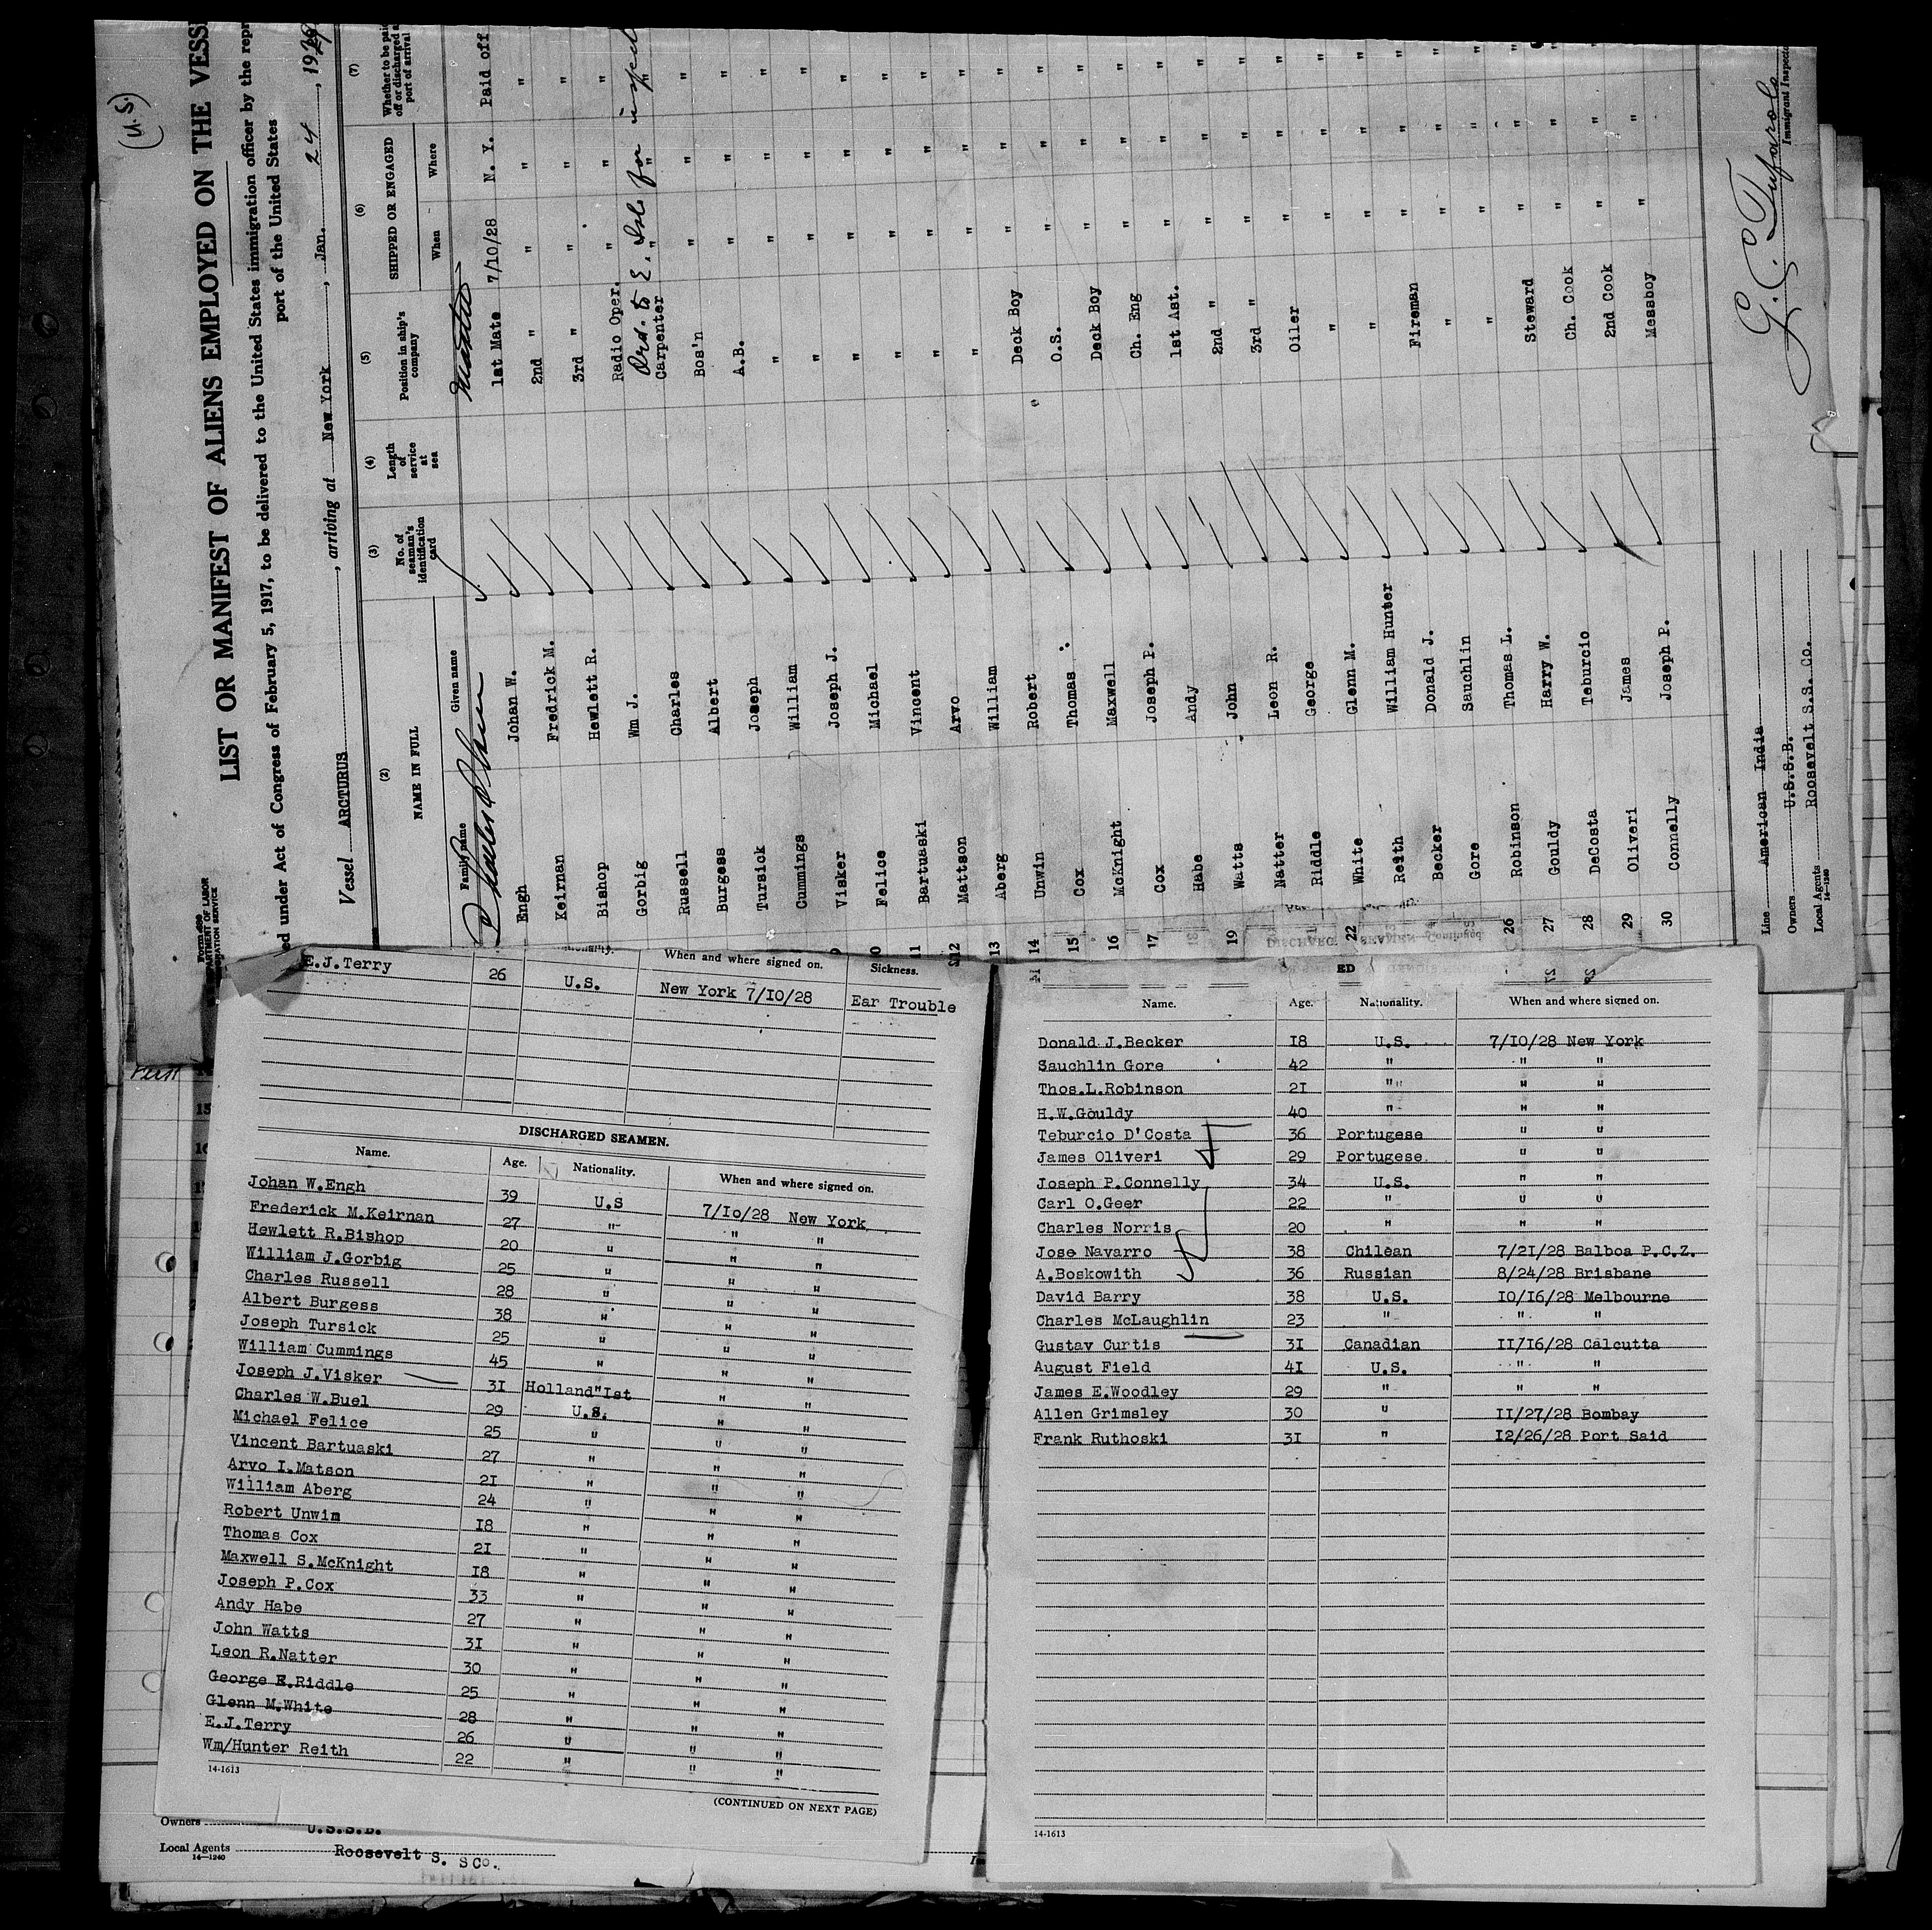 (U.S.)
LIST OR MANIFEST OF ALIENS EMPLOYED ON THE VESS
ed under Act of Congress of February 5, 1917, to be delivered to the United States immigration officer by the repr
port of the United States
Vessel ARCTURUS, arriving at New York, Jan. 24, 19
(2) (3) (4) (5) (6) (7)
NAME IN FULL No. of seaman's identification card Length of service at sea Position in ship's company SHIPPED OR ENGAGED Whether to be paid off or discharged at port of arrival
Family name Given name When Where
Master
Engh Johan W. 1st Mate 7/10/28 N. Y. Paid off
Keirnan Fredrick M. 2nd " " " "
Bishop Hewlett R. 3rd " " " "
Gorbig Wm J. Radio Oper. " " "
Ord. to E. Isl. for inspect
Russell Charles Carpenter " " "
Burgess Albert Bos'n " " "
Tursick Joseph A.B. " " "
Cummings William " " " "
9 Visker Joseph J. " " " "
10 Felice Michael " " " "
11 Bartuaski Vincent " " " "
12 Mattson Arvo " " " "
13 Aberg William " " " "
14 Unwin Robert Deck Boy " " "
15 Cox Thomas O.S. " " "
16 McKnight Maxwell Deck Boy " " "
17 Cox Joseph P. Ch. Eng " " "
18 Habe Andy 1st Ast. " " "
19 Watts John 2nd " " " "
Natter Leon R. 3rd " " " "
Riddle George Oiler " " "
22 White Glenn M. " " " "
Reith William Hunter " " " "
Becker Donald J. Fireman " " "
Gore Sauchlin " " " "
26 Robinson Thomas L. " " " "
27 Gouldy Harry W. Steward " " "
28 DeCosta Teburcio Ch. Cook " " "
29 Oliveri James 2nd Cook " " "
30 Connelly Joseph P. Messboy " " "
Line American India
Owners U.S.S.B.
Local Agents Roosevelt S.S. Co.
14—1240
Immigrant Inspector
When and where signed on. Sickness.
E.J.Terry 26 U.S. New York 7/10/28 Ear Trouble
DISCHARGED SEAMEN.
Name. Age. Nationality. When and where signed on.
Johan W.Engh 39 U.S 7/10/28 New York
Frederick M.Keirnan 27 " " "
Hewlett R.Bishop 20 " " "
William J.Gorbig 25 " " "
Charles Russell 28 " " "
Albert Burgess 38 " " "
Joseph Tursick 25 " " "
William Cummings 45 " " "
Joseph J.Visker 31 Holland"1st " "
Charles W.Buel 29 U.S. " "
Michael Felice 25 " " "
Vincent Bartuaski 27 " " "
Arvo I.Matson 21 " " "
William Aberg 24 " " "
Robert Unwin 18 " " "
Thomas Cox 21 " " "
Maxwell S.McKnight 18 " " "
Joseph P.Cox 33 " " "
Andy Habe 27 " " "
John Watts 31 " " "
Leon R.Natter 30 " " "
George E.Riddle 25 " " "
Glenn M.White 28 " " "
E.J.Terry 26 " " "
Wm/Hunter Reith 22 " " "
14-1613
(CONTINUED ON NEXT PAGE)
Owners U.S.S.B.
Local Agents Roosevelt S. SCo.
14—1240
ED
Name. Age. Nationality. When and where signed on.
Donald J.Becker 18 U.S. 7/10/28 New York
Sauchlin Gore 42 " " "
Thos.L.Robinson 21 " " "
H.W.Gouldy 40 " " "
Teburcio D'Costa 36 Portugese " "
James Oliveri 29 Portugese " "
Joseph P.Connelly 34 U.S. " "
Carl O.Geer 22 " " "
Charles Norris 20 " " "
Jose Navarro 38 Chilean 7/21/28 Balboa P.C.Z.
A.Boskowith 36 Russian 8/24/28 Brisbane
David Barry 38 U.S. 10/16/28 Melbourne
Charles McLaughlin 23 " " "
Gustav Curtis 31 Canadian 11/16/28 Calcutta
August Field 41 U.S. " "
James E.Woodley 29 " " "
Allen Grimsley 30 " 11/27/28 Bombay
Frank Ruthoski 31 " 12/26/28 Port Said
14-1613